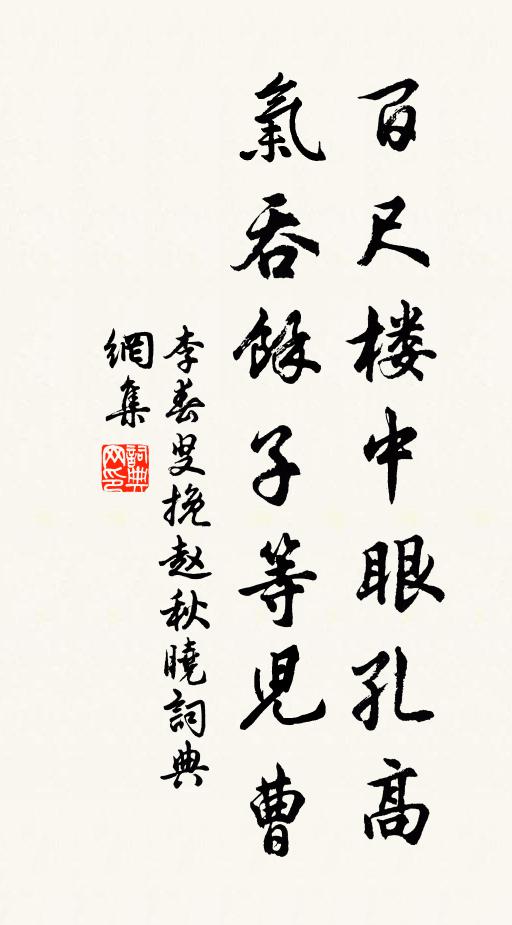 百尺楼中眼孔高
氣吞餘子等兒曹
李春叟挽赵秋曉詞典
網集
詞典
网印